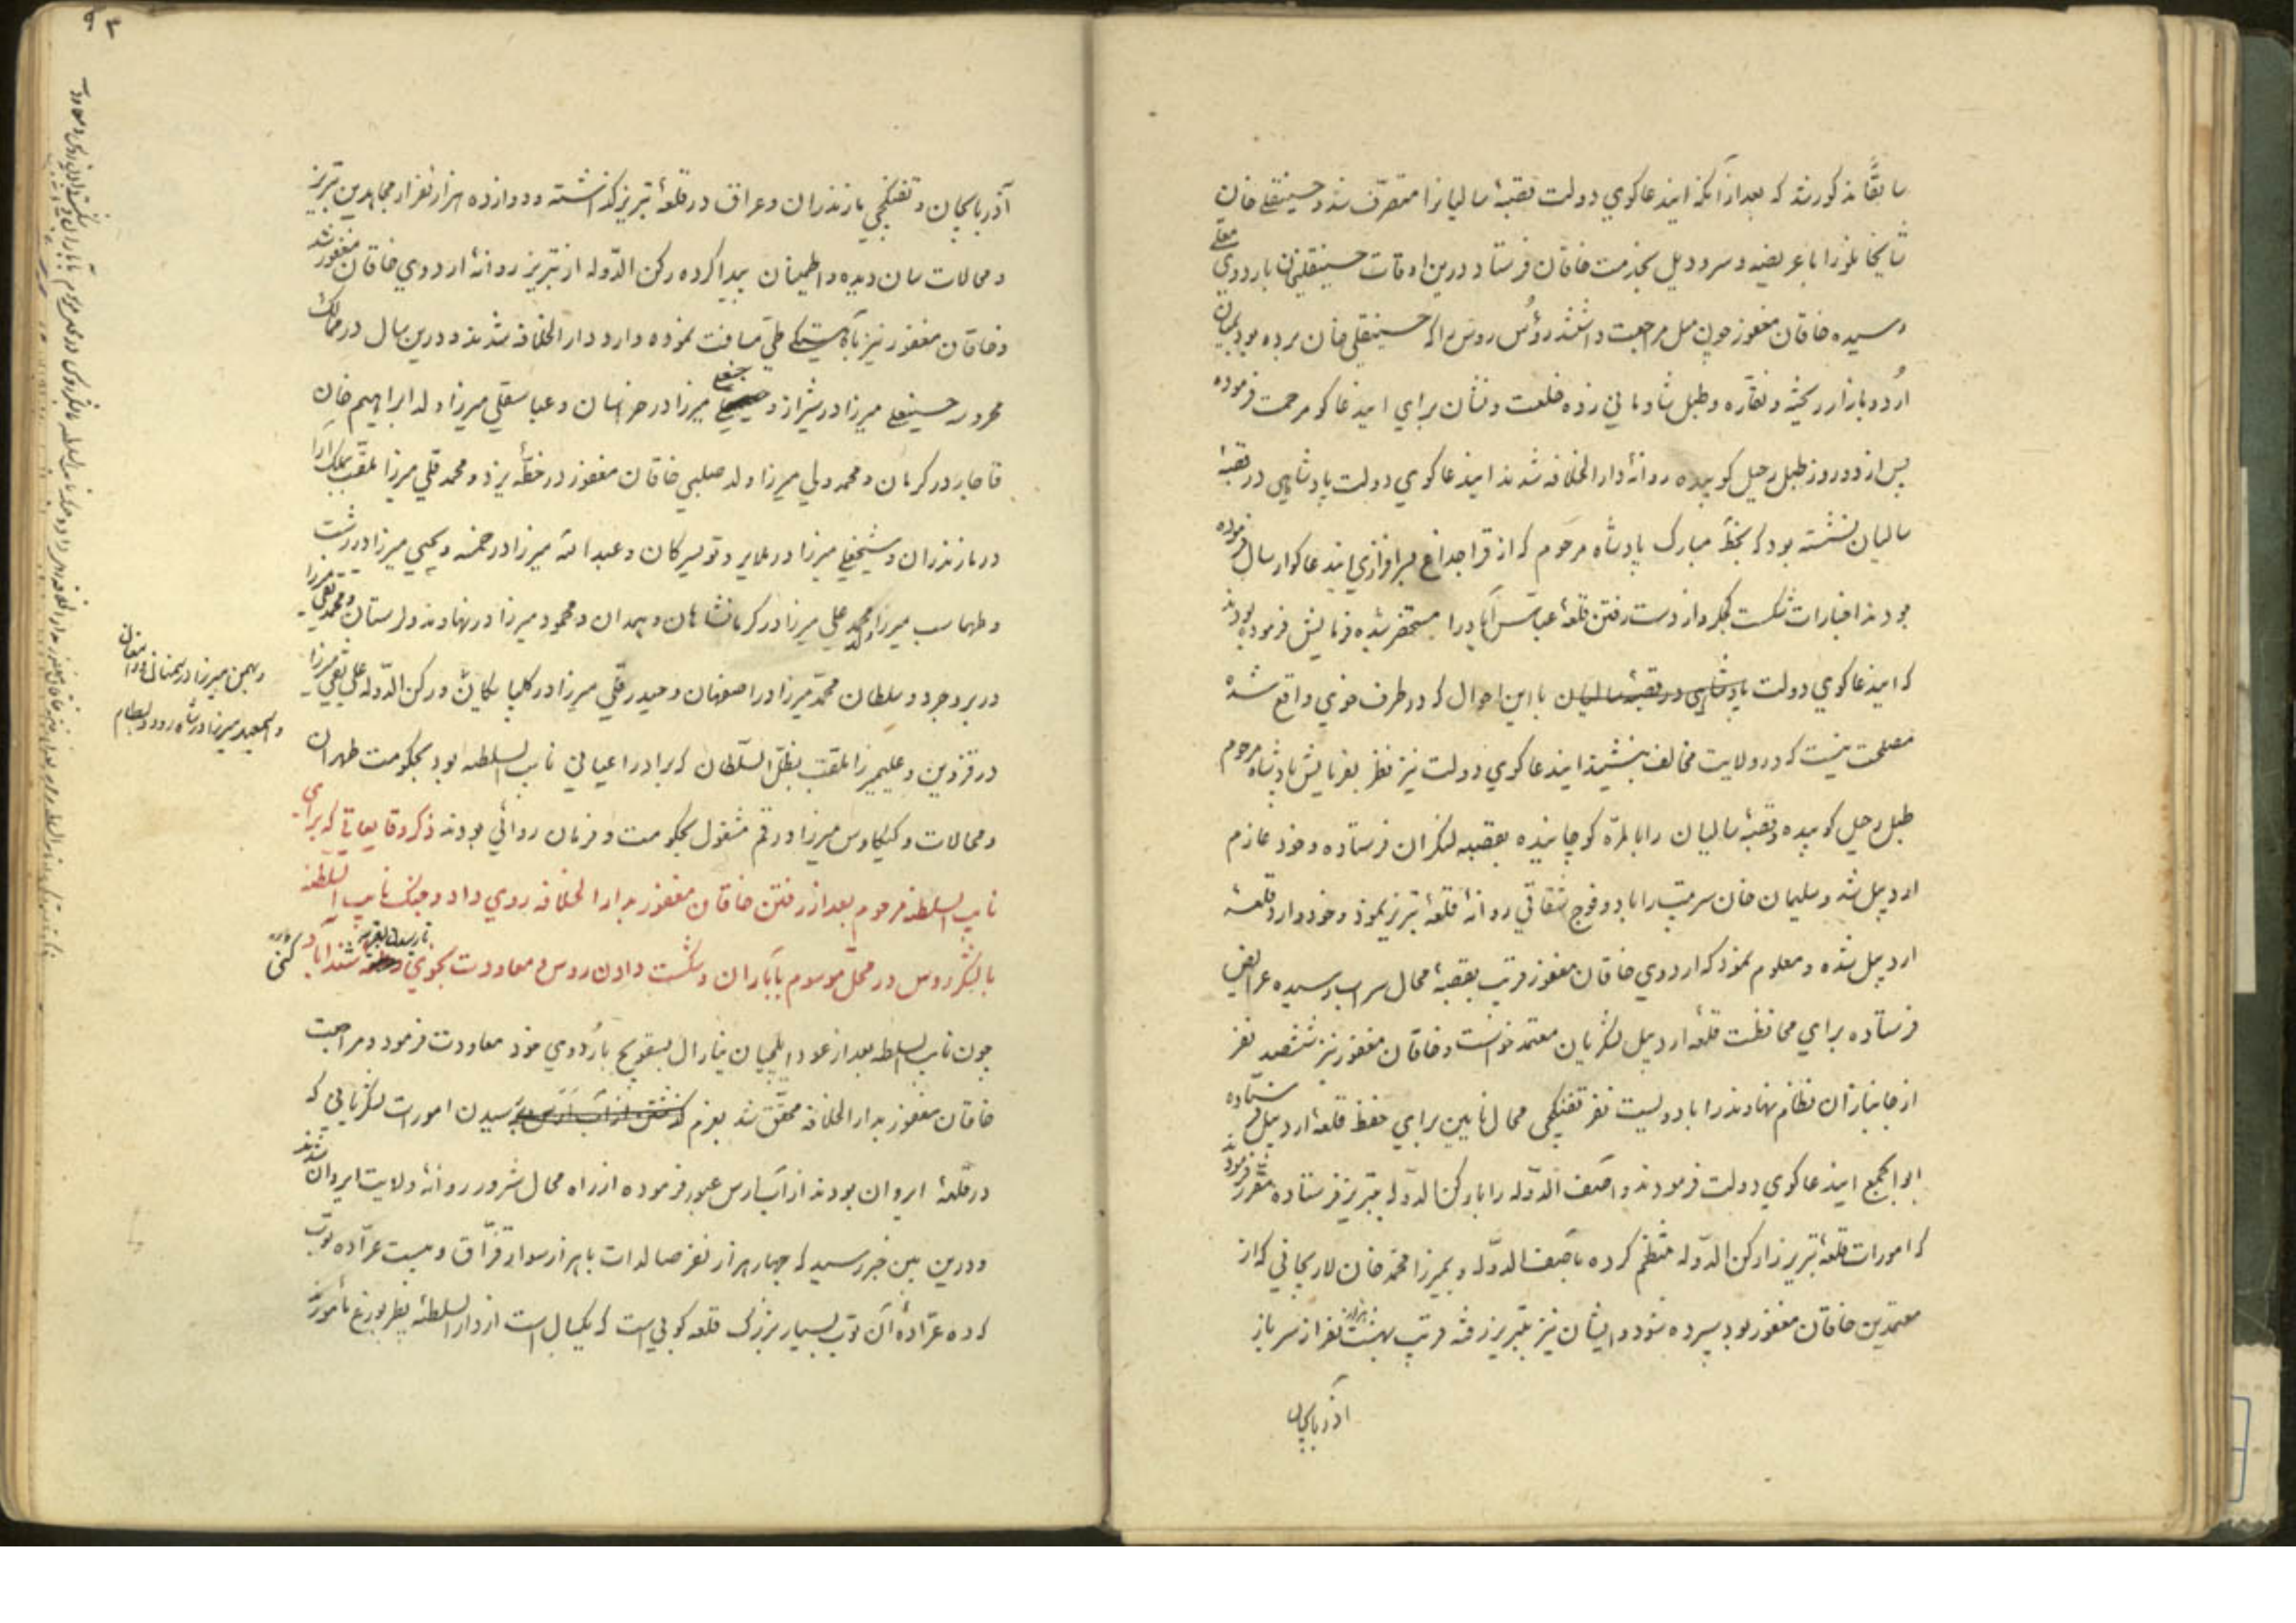 سابقا مذکور شد که بعد از آنکه ایندعاکوی دولت قصبهٔ سالیانرا متصرف شد و حسینقلی خان
را با عریضه و سر و دیل بخدمت خاقان فرستاد درین اوقات حسینقلیخان باردوی معلی
رسیده خاقان مغفور چون میل مراجعت داشتند رؤس روس را که حسینقلی خان برده بود بمیان
اردو بازار ریخته و نقاره و طبل شادمانی زده خلعت و نشان برای ایندعاکو مرحمت فرموده
پس از دو روز طبل رحیل کوبیده روانهٔ دار الخلافه شدند ایندعاکوی دولت پادشاهی در قصبهٔ
سالیان نشسته بود که بخط مبارک پادشاه مرحوم که از قراجداغ بسرافرازی ایندعاکو ارسال فرموده
بودند اخبارات شکست کنجه و از دست رفتن قلعهٔ عباس آباد را مستحضر شده فرمایش فرموده بودند
که ایندعاکوی دولت پادشاهی در قصبهٔ سالیان با این احوال که در طرف خوی واقع شده
مصلحت نیست که در ولایت مخالف بنشیند ایندعاکوی دولت نیز نظر بفرمایش پادشاه مرحوم
طبل رحیل کوبیده و قصبهٔ سالیان را بالمره کوچانیده بقصبه لنکران فرستاده و خود عازم
اردبیل شد و سلیمان خان سرتیپ را با دو فوج شقاقی روانهٔ قلعهٔ تبریز نمود و خود وارد قلعهٔ
اردبیل شده و معلوم نمود که اردوی خاقان مغفور قریب بقصبهٔ محال سراب رسیده عرایض
فرستاده برای محافظت قلعهٔ اردبیل لشکریان معتمد خواست و خاقان مغفور نیز ششصد نفر
از جانبازان نظام نهاوند را با دویست نفر تفنکچی محال نایین برای حفظ قلعهٔ اردبیل فرستاده
ابوابجمع ایندعاکوی دولت فرمودند و آصف الدوله را با رکن الدوله بتبریز فرستاده مقرر فرمودند
که امورات قلعهٔ تبریز را رکن الدوله منتظم کرده بآصف الدوله و بمیرزا محمد خان لاریجانی که از
معتمدین خاقان مغفور بود سپرده شود و ایشان نیز بتبریز رفته قریب بهشت هزار نفر از سرباز
آذربایجان
۹۳
آذربایجان و تفنکچی مازندران و عراق در قلعهٔ تبریز کذاشته و دوازده هزار نفر از مجاهدین تبریز
و محالات سان دیده و اطمینان پیدا کرده رکن الدوله از تبریز روانهٔ اردوی خاقان مغفور شد
و خاقان مغفور نیز باهستکی طی مسافت نموده وارد دار الخلافه شدند و درین سال در ممالک
محروسه حسینعلی میرزا در شیراز و میرزا در خراسان و عباسقلی میرزا ولد ابراهیم خان
قاجار در کرمان و محمد ولی میرزا ولد صلبی خاقان مغفور در خطهٔ یزد و محمد قلی میرزا ملقب بملک آرا
در مازندران و شیخعلی میرزا در ملایر و تویسرکان و عبد الله میرزا در خمسه و یحیی میرزا در رشت
و طهماسب میرزا ولد محمد علی میرزا در کرمانشاهان و همدان و محمود میرزا در نهاوند و لرستان و محمد تقی میرزا
در بروجرد و سلطان محمد میرزا در اصفهان و حیدر قلی میرزا در کلپایکان و رکن الدوله علی نقی میرزا
و بهمن میرزا در سمنان و دامغان
و اسمعیل میرزا در شاهرود و بسطام
در قزوین و علیمیرزا ملقب بظل السلطان که برادر اعیانی نایب السلطنه بود بحکومت طهران
و محالات و کیکاوس میرزا در قم مشغول بحکومت و فرمان روائی بودند ذکر وقایعاتی که برای
نایب السلطنه مرحوم بعد از رفتن خاقان مغفور بدار الخلافه روی داد و جنک نایب السلطنه
با لشکر روس در محل موسوم باباران و شکست دادن روس و معاودت بخوی
چون نایب السلطنه بعد از عود ایلچیان ینارال بسقویچ باردوی خود معاودت فرمود و مراجعت
خاقان مغفور بدار الخلافه محقق شد بعزم رسیدن امورات لشکریانی که
در قلعهٔ ایروان بودند از آب ارس عبور فرموده از راه محال شرور روانهٔ ولایت ایروان شدند
و درین بین خبر رسید که چهار هزار نفر صالدات با هزار سوار قزاق و بیست عراده توپ
که ده عرادهٔ آن توپ بسیار بزرک قلعه کوبی است که یکسال است از دار السلطنهٔ پطربورغ مأمور